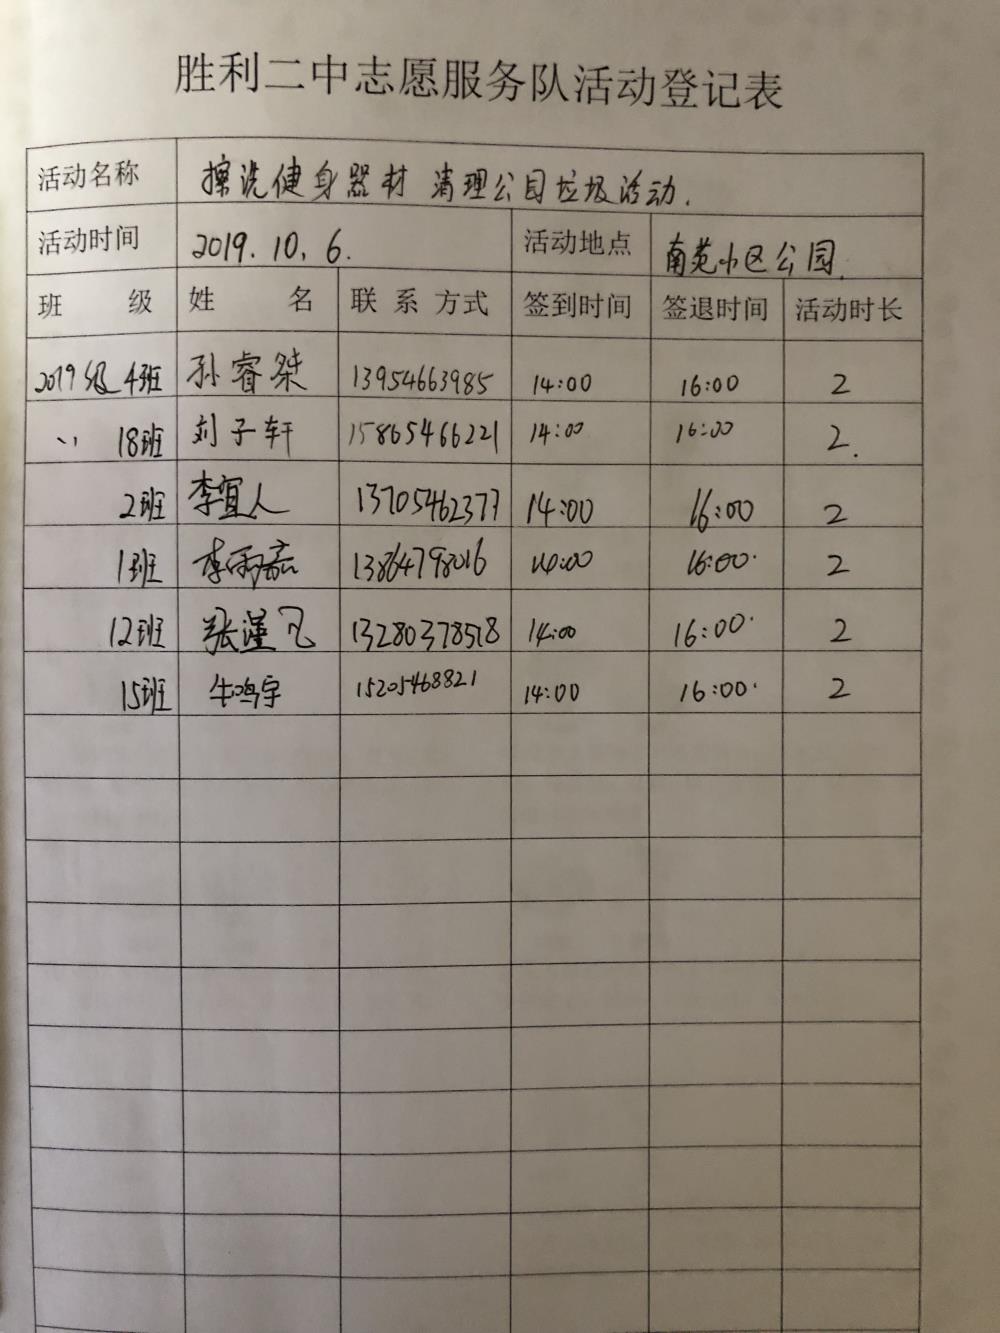 胜利二中志愿服务队活动登记表
活动名称 擦洗健身器材 清理公园垃圾活动.
活动时间 2019.10.6. 活动地点 南苑小区公园.
班 级 姓 名 联系方式 签到时间 签退时间 活动时长
2019级4班 孙睿桀 13954663985 14:00 16:00 2
〃 18班 刘子轩 15865466221 14:00 16:00 2.
2班 李宜人 13705462377 14:00 16:00 2
1班 李雨嘉 13864798016 14:00 16:00. 2
12班 张谨飞 13280378518 14:00 16:00. 2
15班 牛鸣宇 15205468821 14:00 16:00. 2